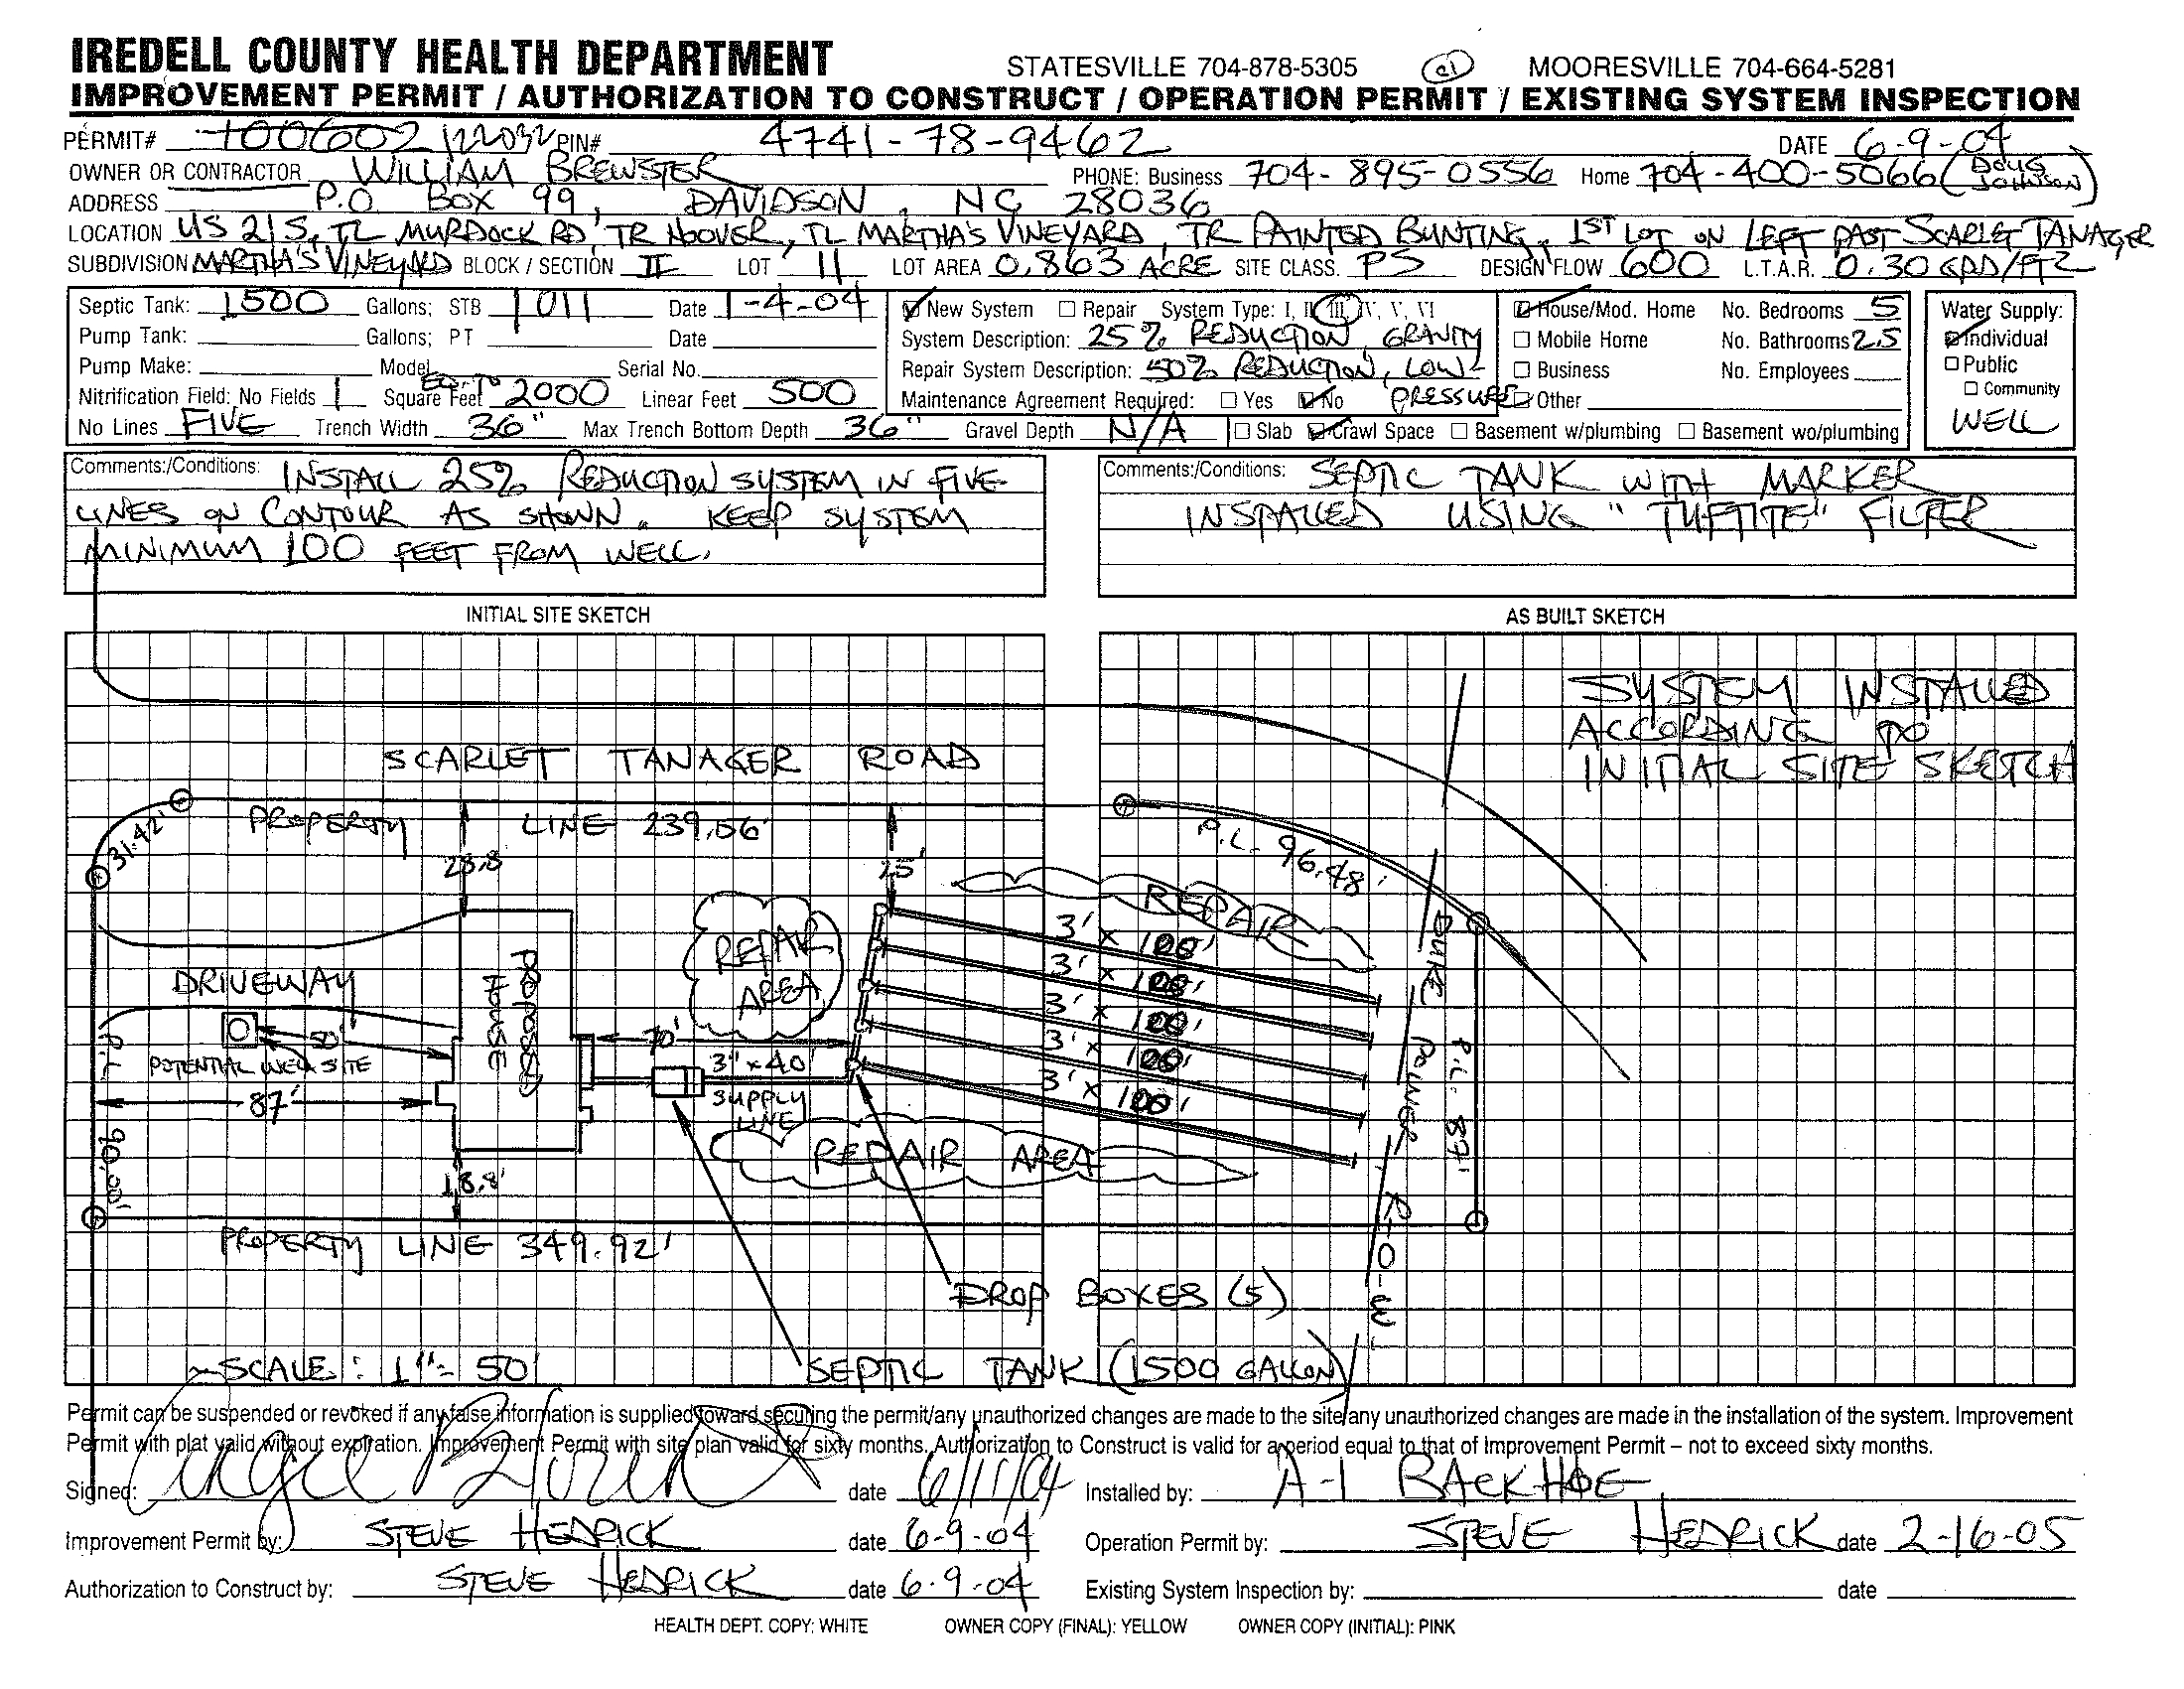 IREDELL COUNTY HEALTH DEPARTMENT STATESVILLE 704-878-5305 MOORESVILLE 704-664-5281
IMPROVEMENT PERMIT / AUTHORIZATION TO CONSTRUCT / OPERATION PERMIT / EXISTING SYSTEM INSPECTION
PERMIT# 100602 122032 PIN# 4741-78-9462 DATE 6-9-04
OWNER OR CONTRACTOR WILLIAM BREWSTER PHONE: Business 704-895-0556 Home 704-400-5066 (DOUG JOHNSON)
ADDRESS P.O. BOX 99, DAVIDSON, NC 28036
LOCATION US 21 S, TL MURDOCK RD, TR HOOVER, TL MARTHA'S VINEYARD, TR PAINTED BUNTING, 1ST LOT ON LEFT PAST SCARLET TANAGER
SUBDIVISION MARTHA'S VINEYARD BLOCK / SECTION II LOT 11 LOT AREA 0.863 ACRE SITE CLASS. PS DESIGN FLOW 600 L.T.A.R. 0.30 GPD/FT2
Septic Tank: 1500 Gallons; STB 1011 Date 1-4-04
Pump Tank: Gallons; PT Date
Pump Make: Model Serial No.
Nitrification Field: No Fields 1 Square Feet EQ. TO 2000 Linear Feet 500
No Lines FIVE Trench Width 36" Max Trench Bottom Depth 36" Gravel Depth N/A
New System Repair System Type: I, II, III, IV, V, VI
System Description: 25% REDUCTION, GRAVITY
Repair System Description: 50% REDUCTION, LOW-
Maintenance Agreement Required: Yes No PRESSURE
House/Mod. Home No. Bedrooms 5
Mobile Home No. Bathrooms 2.5
Business No. Employees
Other
Slab Crawl Space Basement w/plumbing Basement wo/plumbing
Water Supply:
Individual
Public
Community
WELL
Comments:/Conditions: INSTALL 25% REDUCTION SYSTEM IN FIVE
LINES ON CONTOUR AS SHOWN. KEEP SYSTEM
MINIMUM 100 FEET FROM WELL.
Comments:/Conditions: SEPTIC TANK WITH MARKER
INSTALLED USING "TUFTITE" FILTER
INITIAL SITE SKETCH
AS BUILT SKETCH
SYSTEM INSTALLED
ACCORDING TO
INITIAL SITE SKETCH
SCARLET TANAGER ROAD
PROPERTY LINE 239.56'
31.42'
28.8'
25'
P.L. 96.48'
REPAIR
REPAIR
AREA
3' x 100'
3' x 100'
3' x 100'
3' x 100'
3' x 100'
DRIVEWAY
PROPOSED
HOUSE
50'
POTENTIAL WELL SITE
87'
P.L.
90.00'
70'
3" x 40'
SUPPLY
LINE
REPAIR AREA
DUKE POWER R-O-W
P.L. 87'
18.8'
PROPERTY LINE 349.92'
DROP BOXES (5)
SCALE: 1" = 50'
SEPTIC TANK (1500 GALLON)
Permit can be suspended or revoked if any false information is supplied toward securing the permit/any unauthorized changes are made to the site/any unauthorized changes are made in the installation of the system. Improvement
Permit with plat valid without expiration. Improvement Permit with site plan valid for sixty months. Authorization to Construct is valid for a period equal to that of Improvement Permit – not to exceed sixty months.
Signed: date 6/11/04 Installed by: A-1 BACKHOE
Improvement Permit by: STEVE HEDRICK date 6-9-04 Operation Permit by: STEVE HEDRICK date 2-16-05
Authorization to Construct by: STEVE HEDRICK date 6-9-04 Existing System Inspection by: date
HEALTH DEPT. COPY: WHITE OWNER COPY (FINAL): YELLOW OWNER COPY (INITIAL): PINK